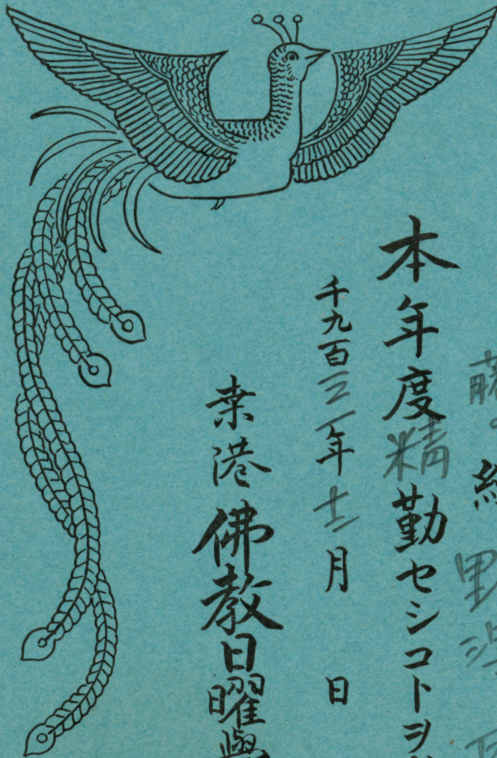 本年度精勤セシコトヲ
千九百三一年十二月 日
桒港佛教日曜學